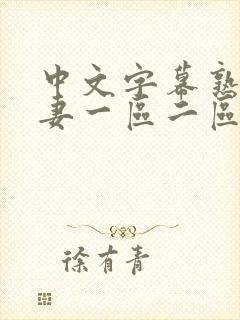 中文字幕熟
妻一區二區
徐有青